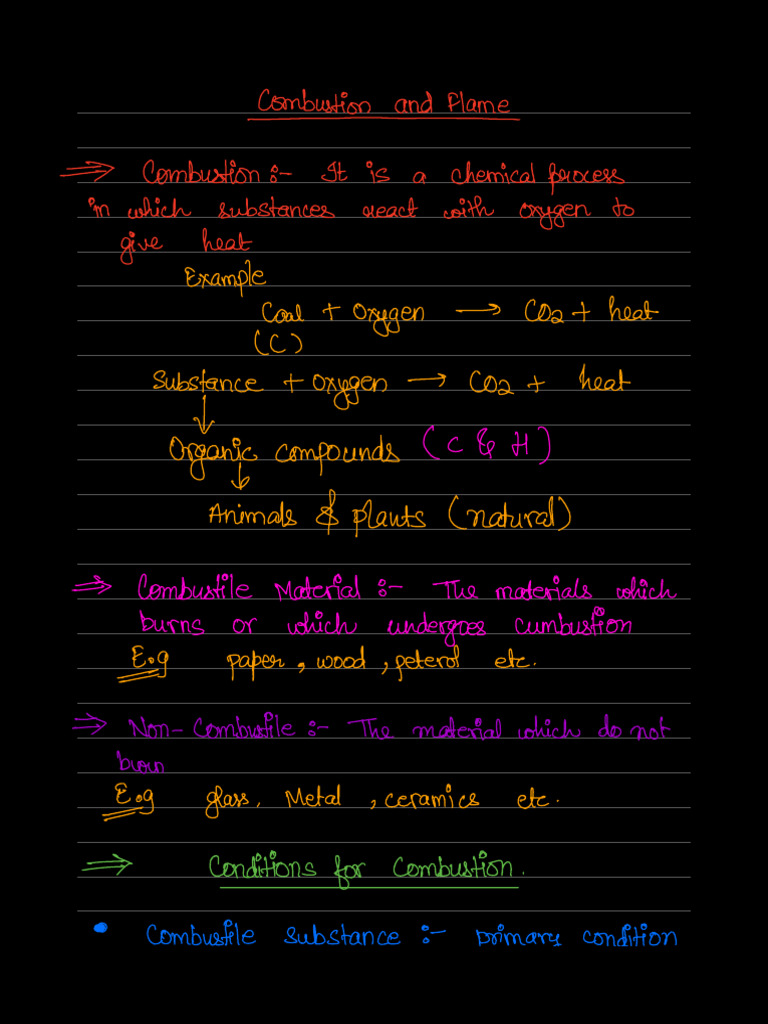 Combustion and Flame
⇒ Combustion :- It is a chemical process
in which substances react with oxygen to
give heat
Example
Coal + Oxygen → CO2 + heat
(C)
Substance + Oxygen → CO2 + heat
↓
Organic compounds (C & H)
↓
Animals & plants (natural)
⇒ Combustile Material :- The materials which
burns or which undergoes cumbustion
E.g paper, wood, peterol etc.
⇒ Non-Combustile :- The material which do not
burn
E.g glass, Metal, ceramics etc.
⇒ Conditions for Combustion.
• Combustile substance :- primary condition